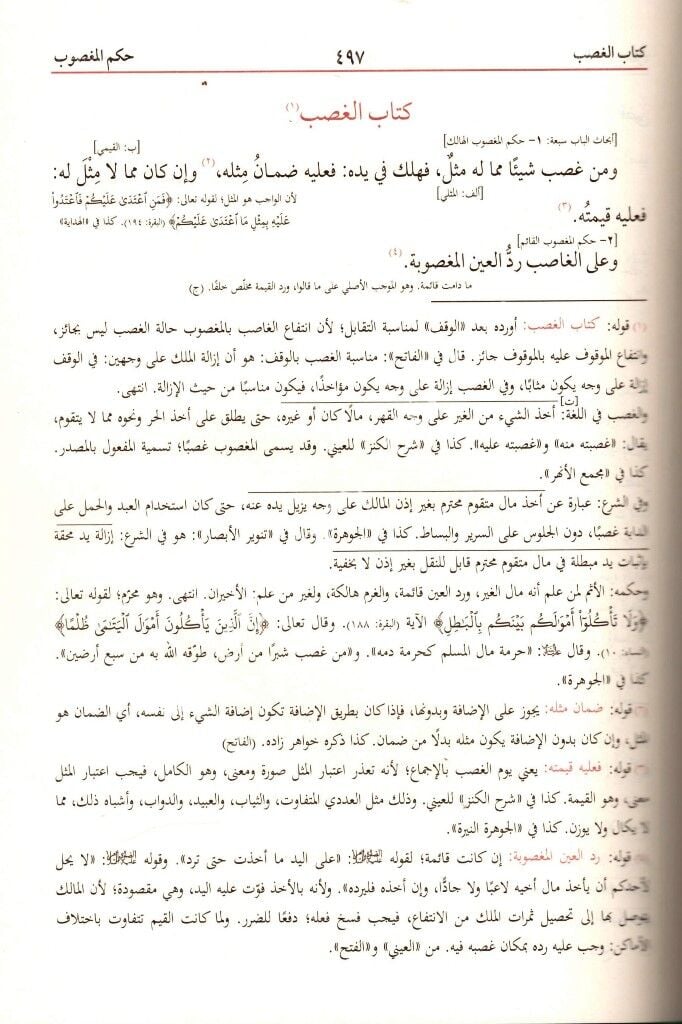 كتاب الغصب ٤٩٧ حكم المغصوب
كتاب الغصب(١)
[أبحاث الباب سبعة: ١- حكم المغصوب الهالك] [ب: القيمي]
ومن غصب شيئًا مما له مثلٌ، فهلك في يده: فعليه ضمانُ مِثله،(٢) وإن كان مما لا مِثْلَ له:
[ألف: المثلي] لأن الواجب هو المثل؛ لقوله تعالى: ﴿فَمَنِ ٱعْتَدَىٰ عَلَيْكُمْ فَٱعْتَدُوا۟
فعليه قيمتُه.(٣) عَلَيْهِ بِمِثْلِ مَا ٱعْتَدَىٰ عَلَيْكُمْ﴾ (البقرة: ١٩٤). كذا في «الهداية»
[٢- حكم المغصوب القائم]
وعلى الغاصب ردُّ العين المغصوبة.(٤)
ما دامت قائمة. وهو الموجب الأصلي على ما قالوا، ورد القيمة مخلّص خلفًا. (ج)
(١) قوله: كتاب الغصب: أورده بعد «الوقف» لمناسبة التقابل؛ لأن انتفاع الغاصب بالمغصوب حالة الغصب ليس بجائز،
وانتفاع الموقوف عليه بالموقوف جائز. قال في «الفاتح»: مناسبة الغصب بالوقف: هو أن إزالة الملك على وجهين: في الوقف
إزالة على وجه يكون مثابًا، وفي الغصب إزالة على وجه يكون مؤاخذًا، فيكون مناسبًا من حيث الإزالة. انتهى.
[ت]
والغصب في اللغة: أخذ الشيء من الغير على وجه القهر، مالًا كان أو غيره، حتى يطلق على أخذ الحر ونحوه مما لا يتقوم،
يقال: «غصبته منه» و«غصبته عليه». كذا في «شرح الكنز» للعيني. وقد يسمى المغصوب غصبًا؛ تسمية المفعول بالمصدر.
كذا في «مجمع الأنهر».
وفي الشرع: عبارة عن أخذ مال متقوم محترم بغير إذن المالك على وجه يزيل يده عنه، حتى كان استخدام العبد والحمل على
الدابة غصبًا، دون الجلوس على السرير والبساط. كذا في «الجوهرة». وقال في «تنوير الأبصار»: هو في الشرع: إزالة يد محقة
وإثبات يد مبطلة في مال متقوم محترم قابل للنقل بغير إذن لا بخفية.
وحكمه: الأثم لمن علم أنه مال الغير، ورد العين قائمة، والغرم هالكة، ولغير من علم: الأخيران. انتهى. وهو محرّم؛ لقوله تعالى:
﴿وَلَا تَأْكُلُوٓا۟ أَمْوَٰلَكُم بَيْنَكُم بِٱلْبَٰطِلِ﴾ الآية (البقرة: ١٨٨). وقال تعالى: ﴿إِنَّ ٱلَّذِينَ يَأْكُلُونَ أَمْوَٰلَ ٱلْيَتَٰمَىٰ ظُلْمًا﴾
(النساء: ١٠). وقال ﷺ: «حرمة مال المسلم كحرمة دمه». و«من غصب شبرًا من أرض، طوّقه الله به من سبع أرضين».
كذا في «الجوهرة».
(٢) قوله: ضمان مثله: يجوز على الإضافة وبدونها، فإذا كان بطريق الإضافة تكون إضافة الشيء إلى نفسه، أي الضمان هو
المثل، وإن كان بدون الإضافة يكون مثله بدلًا من ضمان. كذا ذكره خواهر زاده. (الفاتح)
(٣) قوله: فعليه قيمته: يعني يوم الغصب بالإجماع؛ لأنه تعذر اعتبار المثل صورة ومعنى، وهو الكامل، فيجب اعتبار المثل
معنى، وهو القيمة. كذا في «شرح الكنز» للعيني. وذلك مثل العددي المتفاوت، والثياب، والعبيد، والدواب، وأشباه ذلك، مما
لا يكال ولا يوزن. كذا في «الجوهرة النيرة».
(٤) قوله: رد العين المغصوبة: إن كانت قائمة؛ لقوله عليه السلام: «على اليد ما أخذت حتى ترد». وقوله عليه السلام: «لا يحل
لأحدكم أن يأخذ مال أخيه لاعبًا ولا جادًّا، وإن أخذه فليرده». ولأنه بالأخذ فوّت عليه اليد، وهي مقصودة؛ لأن المالك
يتوصل بها إلى تحصيل ثمرات الملك من الانتفاع، فيجب فسخ فعله؛ دفعًا للضرر. ولما كانت القيم تتفاوت باختلاف
الأماكن: وجب عليه رده بمكان غصبه فيه. من «العيني» و«الفتح».